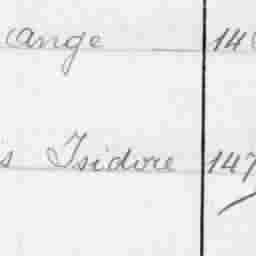 Cange 14
s Isidore 147